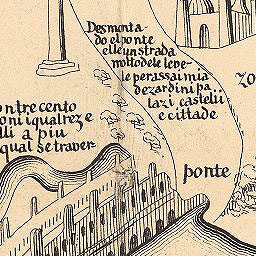 Desmonta
do elponte
elle un strada
molto deleue
le perassai mia
dezardini pa..
lazi castelii
e cittade
ntre cento
oni iqualreze
lli a piu
qual se traver
ponte
zo